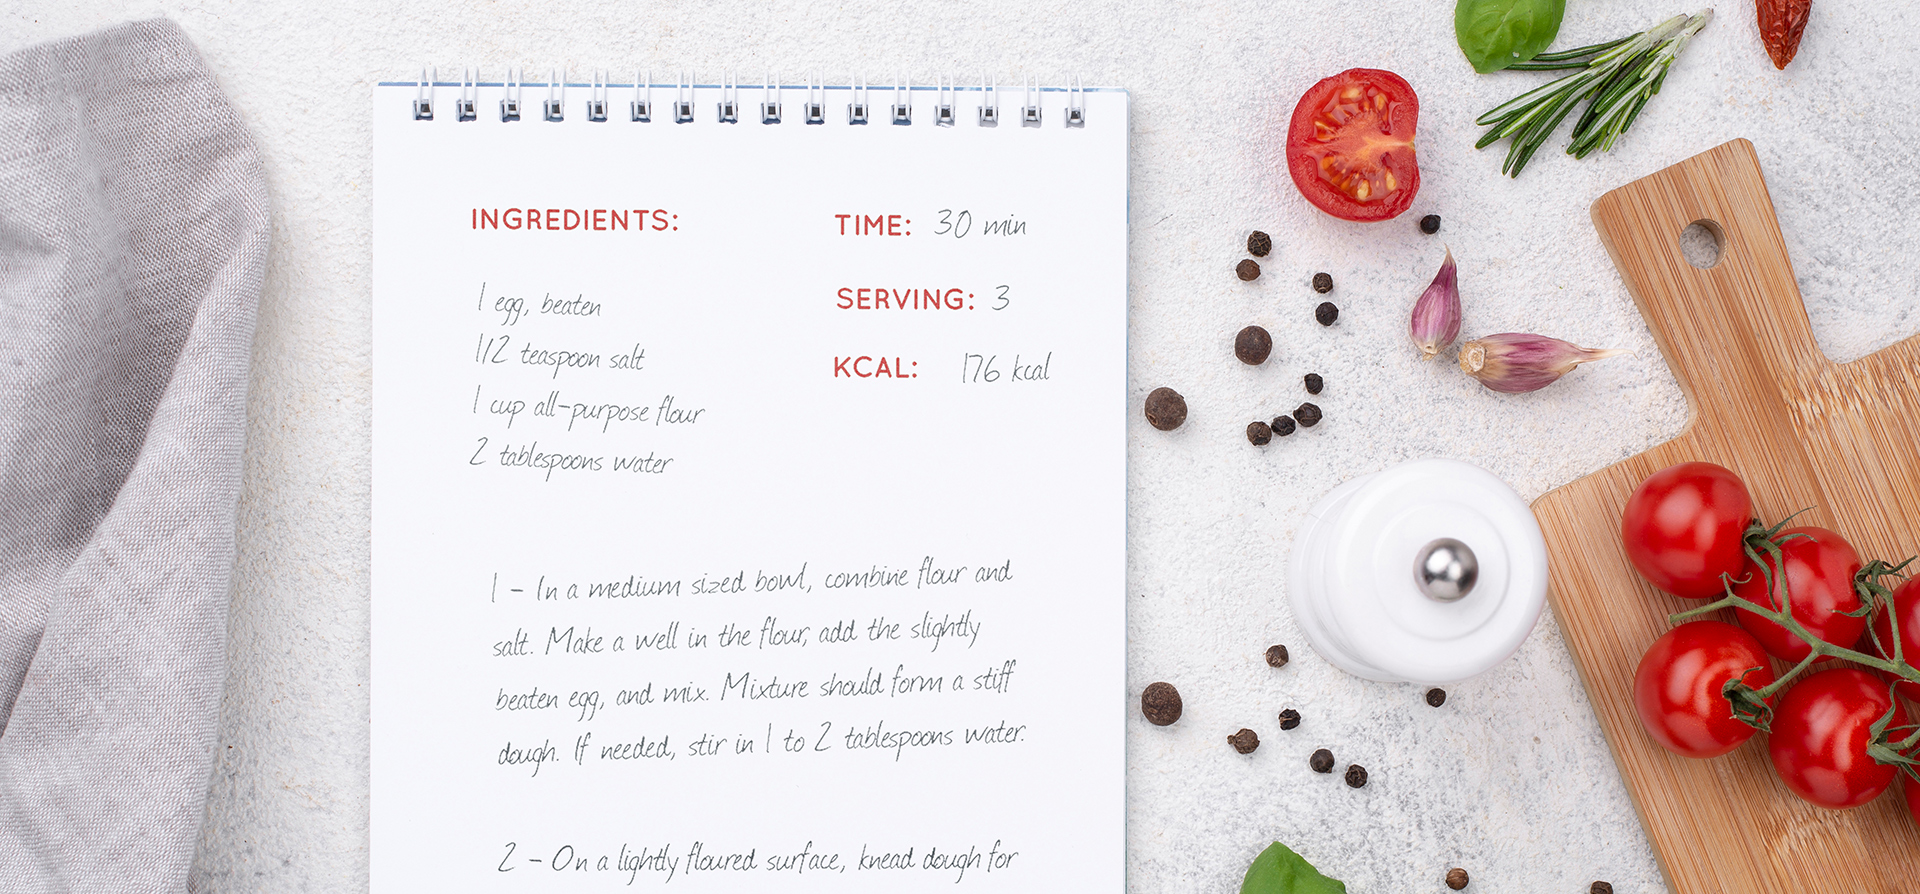 INGREDIENTS:
1 egg, beaten
1/2 teaspoon salt
1 cup all-purpose flour
2 tablespoons water
TIME: 30 min
SERVING: 3
KCAL: 176 kcal
1 - In a medium sized bowl, combine flour and
salt. Make a well in the flour, add the slightly
beaten egg, and mix. Mixture should form a stiff
dough. If needed, stir in 1 to 2 tablespoons water.
2 - On a lightly floured surface, knead dough for